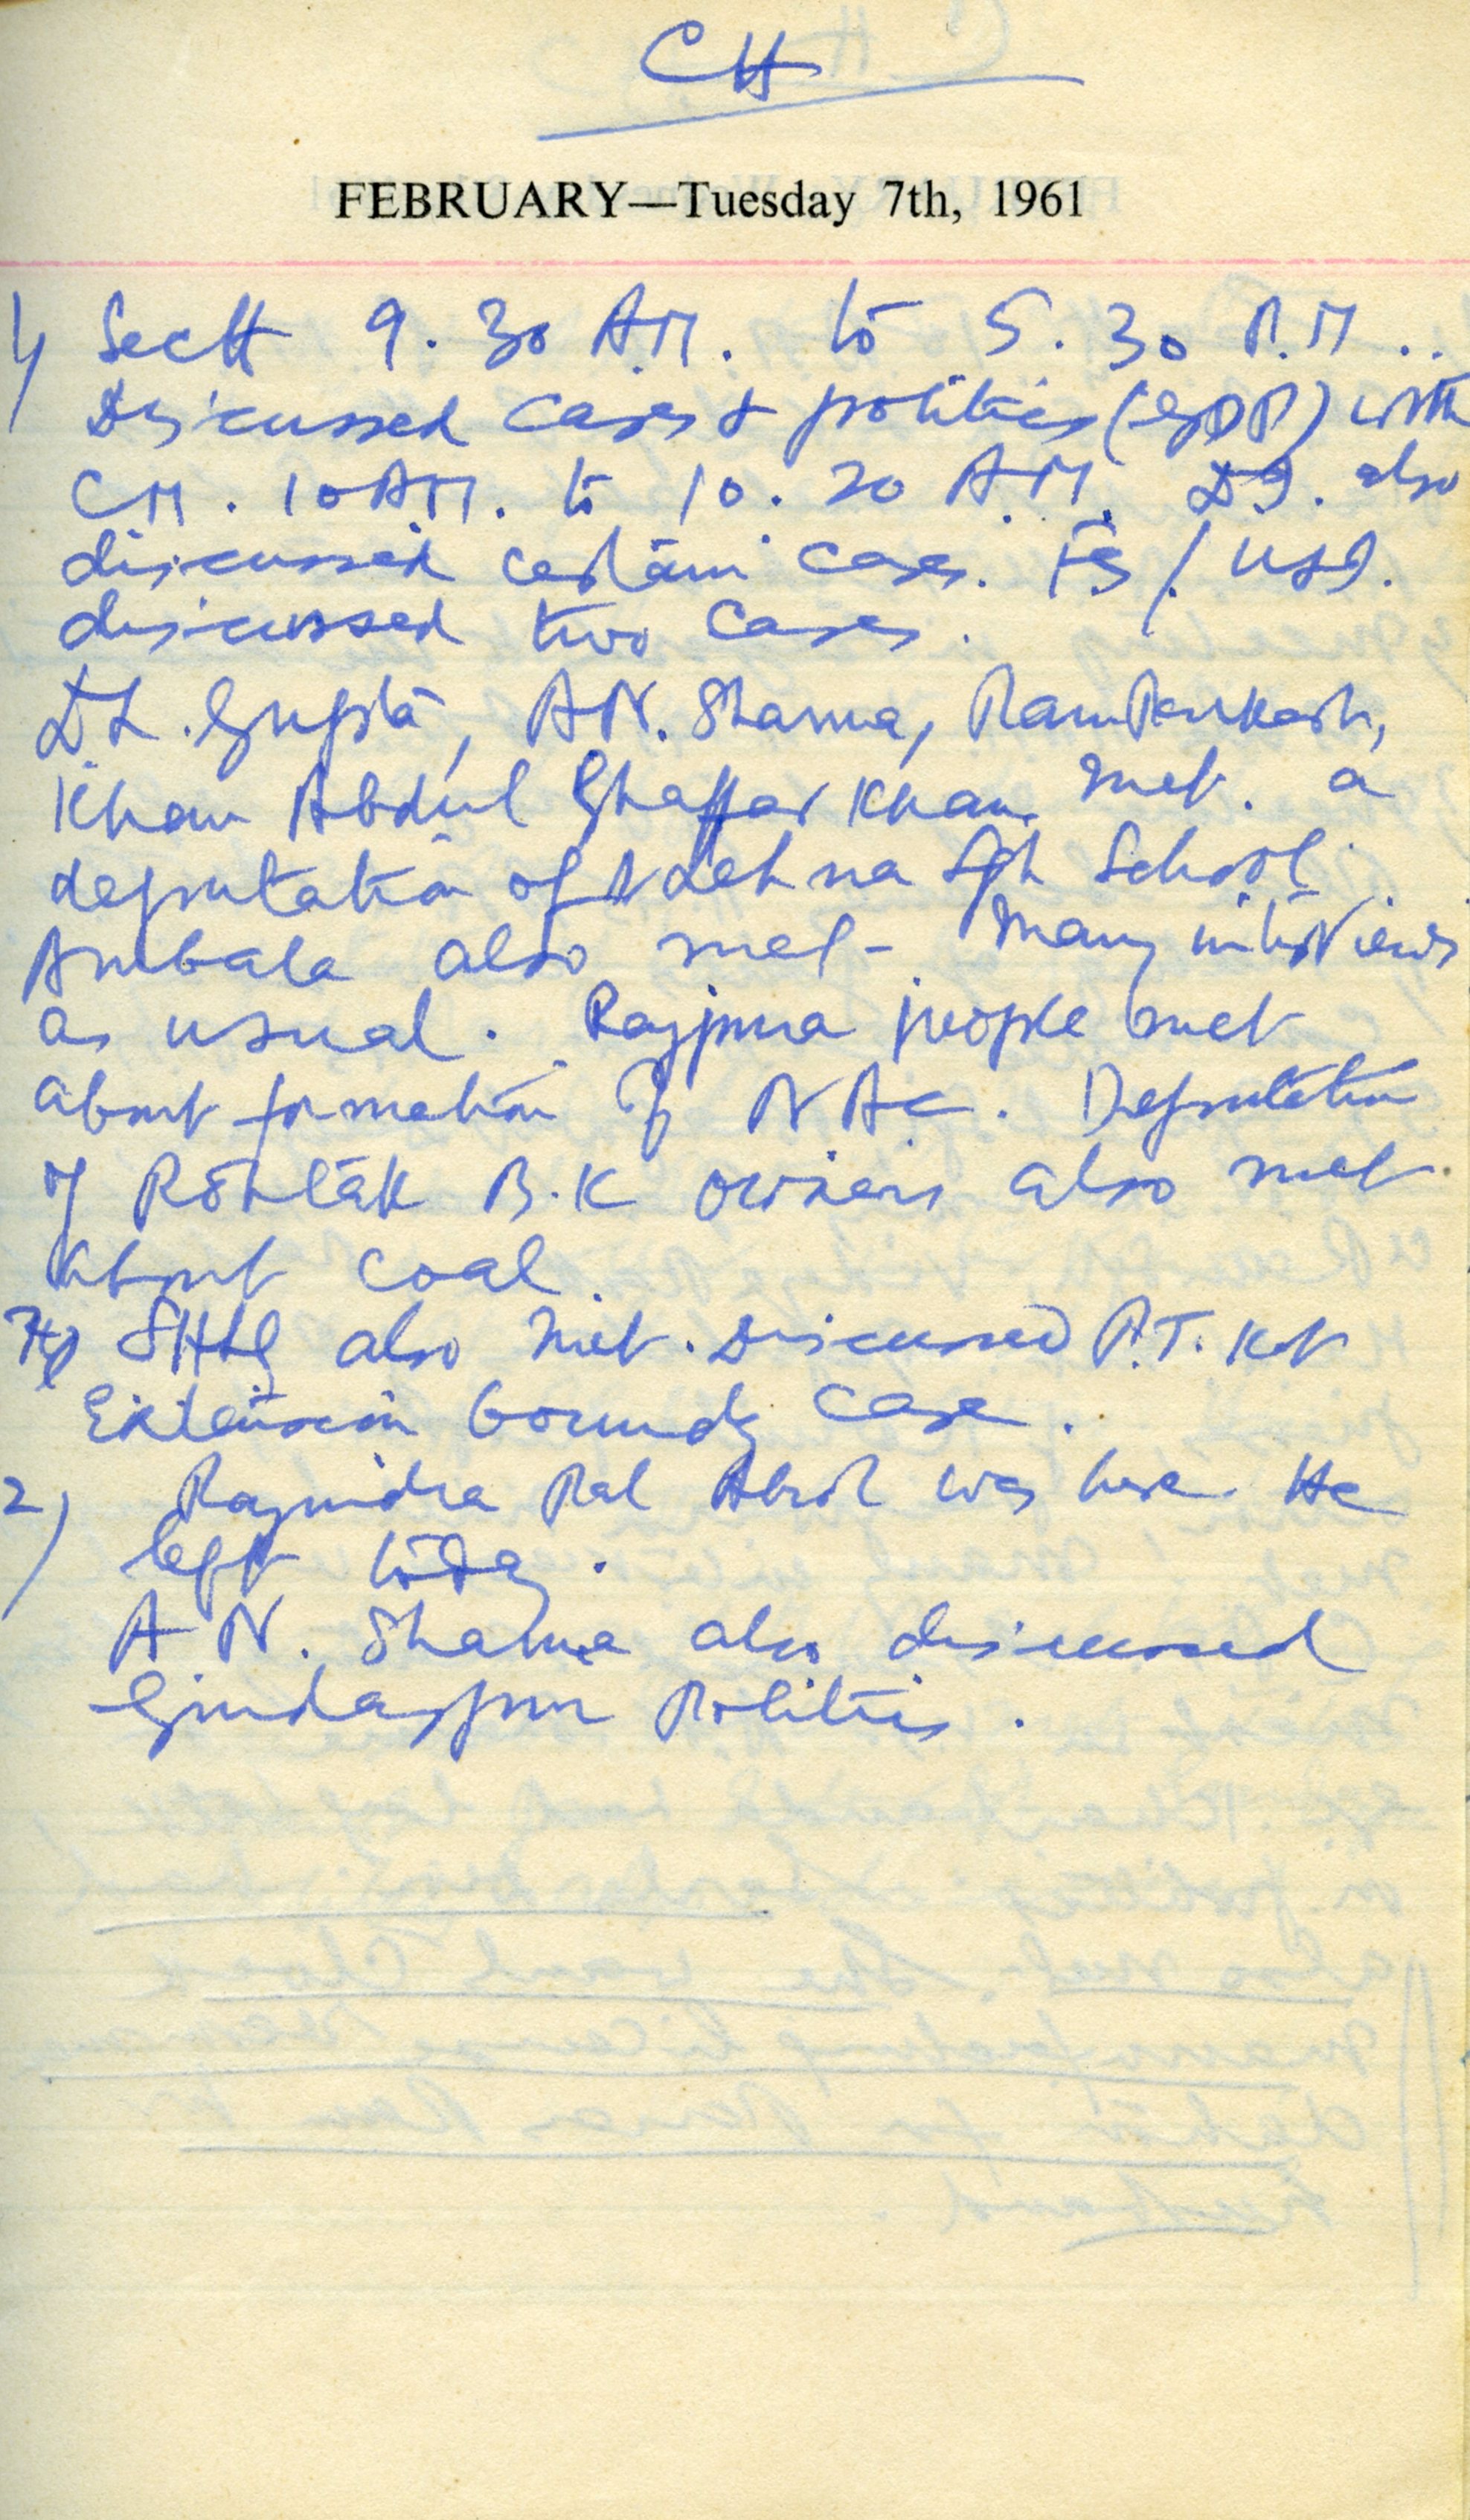 CH
FEBRUARY—Tuesday 7th, 1961
1) Sectt 9.30 A.M. to 5.30 P.M..
Discussed cases & politics (GDP) with
CM. 10 AM. to 10.20 A.M. DI. also
discussed certain cases. FS / USI.
discussed two cases.
D.L. Gupta, A.N. Sharma, Ram Parkash,
Khan Abdul Ghaffar Khan met. a
deputation of Lehna Sgh School
Ambala also met- Many interviews
as usual. Rajpura people met
about formation of NAC. Deputation
of Rohtak B.K owners also met
about coal.
SHLG also met. Discussed P.T. Kot
Extension boundy case.
2) Rajindra Pal Abrol was here. He
left today.
A N. Sharma also discussed
Gurdaspur Politics.